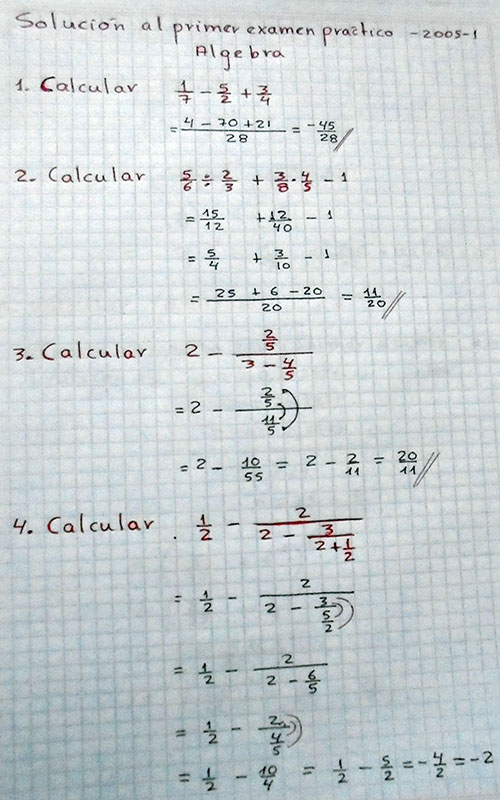 Solución al primer examen practico - 2005-1
Algebra
1. Calcular 1/7 - 5/2 + 3/4
= (4 - 70 + 21)/28 = -45/28 //
2. Calcular 5/6 ÷ 2/3 + 3/8 · 4/5 - 1
= 15/12 + 12/40 - 1
= 5/4 + 3/10 - 1
= (25 + 6 - 20)/20 = 11/20 //
3. Calcular 2 - (2/5)/(3 - 4/5)
= 2 - (2/5)/(11/5)
= 2 - 10/55 = 2 - 2/11 = 20/11 //
4. Calcular . 1/2 - 2/(2 - 3/(2 + 1/2))
= 1/2 - 2/(2 - 3/(5/2))
= 1/2 - 2/(2 - 6/5)
= 1/2 - 2/(4/5)
= 1/2 - 10/4 = 1/2 - 5/2 = -4/2 = -2